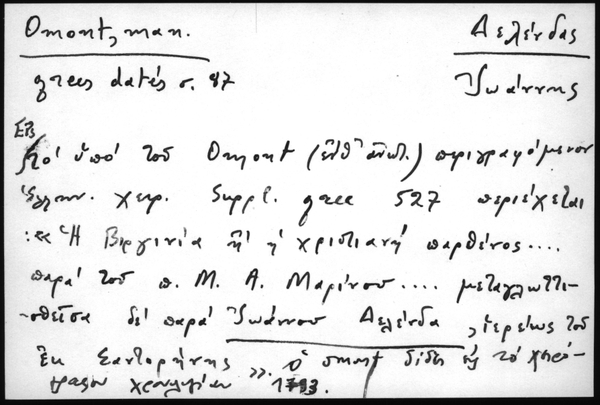 Omont, man. Δελένδας
grecs datés σ. 87 Ἰωάννης
Εἰς
τὸ ὑπὸ τοῦ Omont (ἔνθ' ἀνωτ.) περιγραφόμενον
ἑλλην. χειρ. Suppl. grec 527 περιέχεται
: «Ἡ Βιργινία ἢ ἡ χριστιανὴ παρθένος....
παρὰ τοῦ π. Μ. Α. Μαρίνου.... μεταγλωττι-
σθεῖσα δὲ παρὰ Ἰωάννου Δελένδα, ἱερέως τοῦ
ἐκ Σαντορήνης ». ὁ Omont δίδει εἰς τὸ χειρό-
γραφον χρονολογίαν